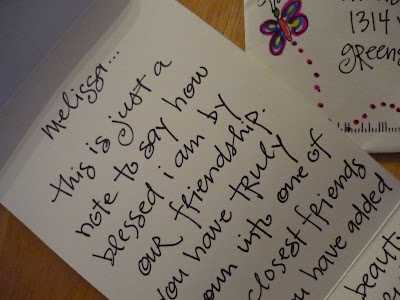 melissa...
this is just a
note to say how
blessed i am by
our friendship.
you have truly
own into one of
closest friends
u have added
1314
greens